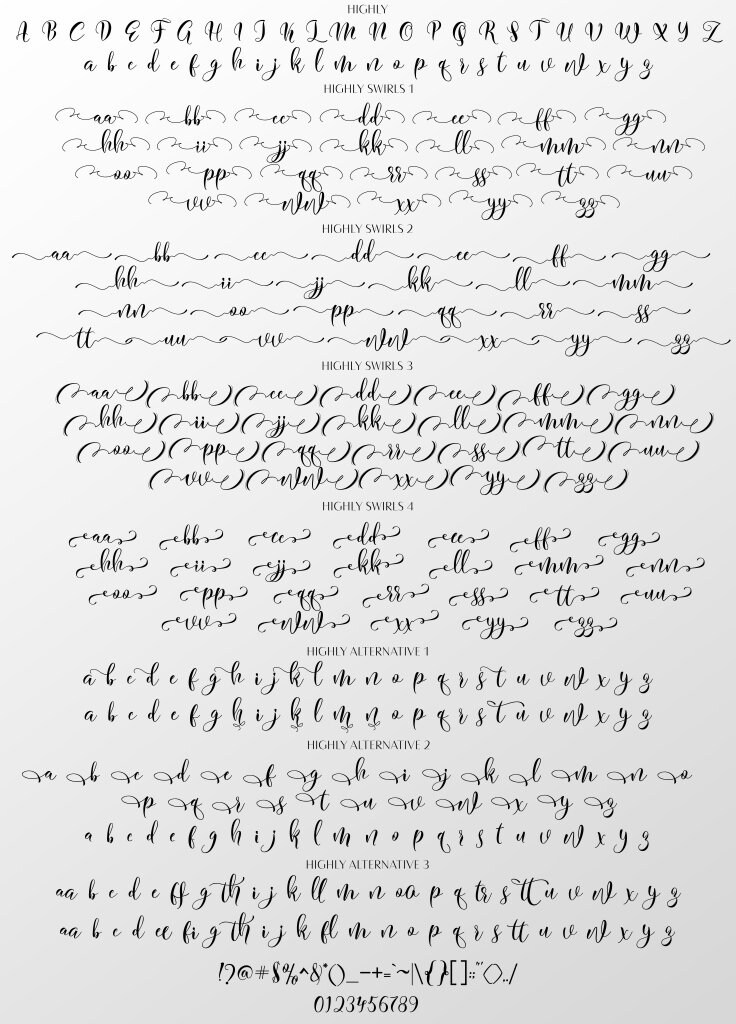 HIGHLY
A B C D E F G H I J K L M N O P Q R S T U V W X Y Z
a b c d e f g h i j k l m n o p q r s t u v w x y z
HIGHLY SWIRLS 1
aa bb cc dd ee ff gg
hh ii jj kk ll mm nn
oo pp qq rr ss tt uu
vv ww xx yy zz
HIGHLY SWIRLS 2
aa bb cc dd ee ff gg
hh ii jj kk ll mm
nn oo pp qq rr ss
tt uu vv ww xx yy zz
HIGHLY SWIRLS 3
aa bb cc dd ee ff gg
hh ii jj kk ll mm nn
oo pp qq rr ss tt uu
vv ww xx yy zz
HIGHLY SWIRLS 4
aa bb cc dd ee ff gg
hh ii jj kk ll mm nn
oo pp qq rr ss tt uu
vv ww xx yy zz
HIGHLY ALTERNATIVE 1
a b c d e f g h i j k l m n o p q r s t u v w x y z
a b c d e f g h i j k l m n o p q r s t u v w x y z
HIGHLY ALTERNATIVE 2
a b c d e f g h i j k l m n o
p q r s t u v w x y z
a b c d e f g h i j k l m n o p q r s t u v w x y z
HIGHLY ALTERNATIVE 3
aa b c d e ff g th i j k ll m n oo p q tr s tt u v w x y z
aa b c d ee fi g th i j k fl m n o p q r s tt u v w x y z
!?@#$%^&*()_-+=`~|\{}[]:;"'<>.,/
0123456789